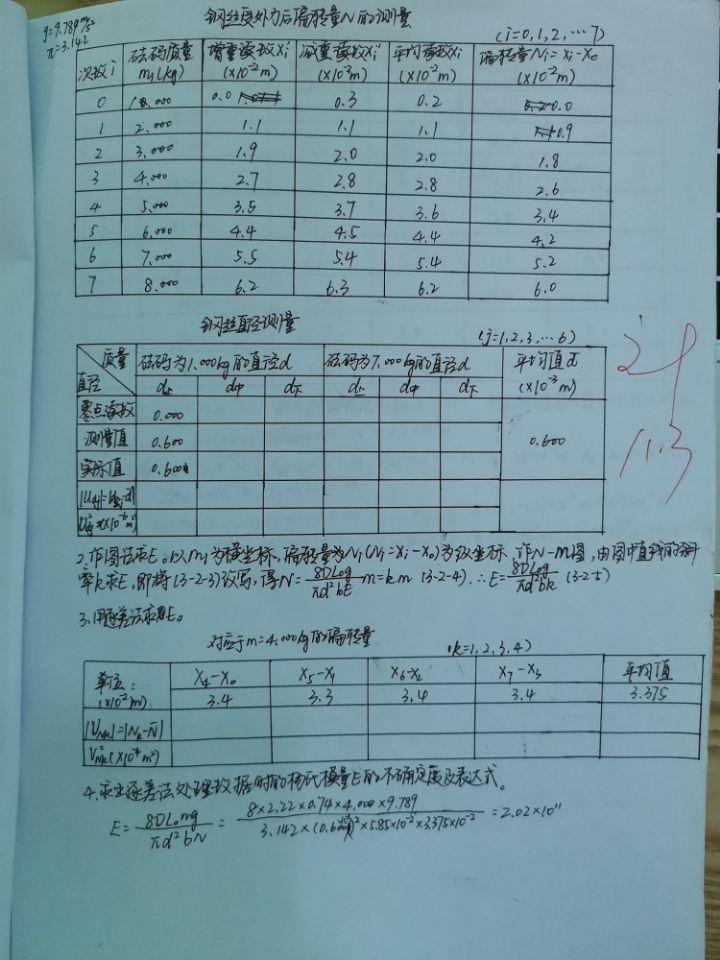 g=9.789m/s²
π=3.142
钢丝受外力后偏移量N的测量
(i=0,1,2,…7)
次数i 砝码质量mi(kg) 增重读数xi(×10⁻²m) 减重读数xi(×10⁻²m) 平均读数xi(×10⁻²m) 偏移量Ni=xi-x0(×10⁻²m)
0 1.000 0.0 0.3 0.2 0.0
1 2.000 1.1 1.1 1.1 0.9
2 3.000 1.9 2.0 2.0 1.8
3 4.000 2.7 2.8 2.8 2.6
4 5.000 3.5 3.7 3.6 3.4
5 6.000 4.4 4.5 4.4 4.2
6 7.000 5.5 5.4 5.4 5.2
7 8.000 6.2 6.3 6.2 6.0
钢丝直径测量
(j=1,2,3,…6)
质量 直径 砝码为1.000kg的直径d 砝码为7.000kg的直径d 平均值d̄(×10⁻³m)
d上 d中 d下 d上 d中 d下
零点读数 0.000
测量值 0.600 0.600
实际值 0.600
2.作图法求E。以mi为横坐标,偏移量为Ni(Ni=xi-x0)为纵坐标,作N-m图,由图中直线的斜
率k求E,即将(3-2-3)改写,得N=8DL0g/πd²bE m=km (3-2-4),∴E=8DL0g/πd²bk (3-2-5)
3.用逐差法求E。
对应于m=4.000kg的偏移量 (k=1,2,3,4)
单位:(×10⁻²m) x4-x0 x5-x1 x6-x2 x7-x3 平均值
3.4 3.3 3.4 3.4 3.375
|VNk|=|Nk-N̄|
V²Nk(×10⁻⁴m²)
4.求出逐差法处理数据时的杨氏模量E的不确定度及表达式。
E=8DL0mg/πd²bN=8×2.22×0.74×4.000×9.789/3.142×(0.6)²×5.85×10⁻²×3.375×10⁻²=2.02×10¹¹
11.3